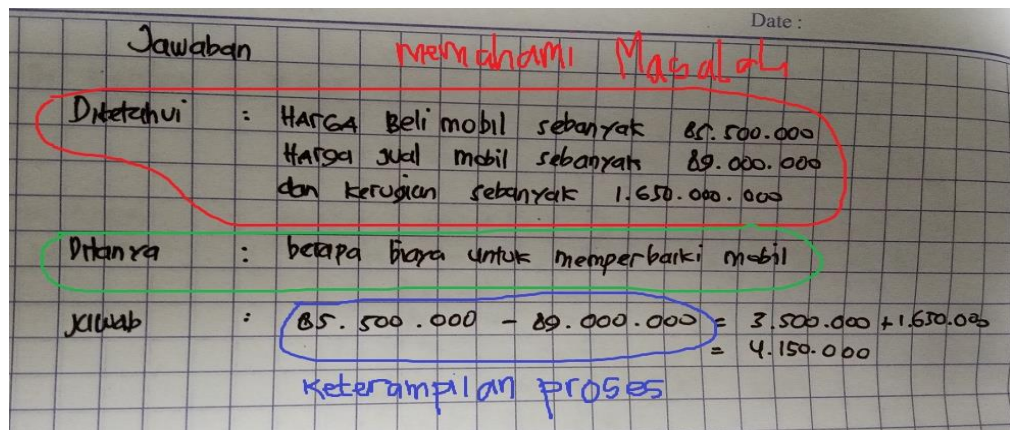 Date :
Jawaban Memahami Masalah
Diketahui : HARGA Beli mobil sebanyak 85.500.000
Harga jual mobil sebanyak 89.000.000
dan kerugian sebanyak 1.650.000.000
Ditanya : berapa biaya untuk memperbaiki mobil
Jawab : 85.500.000 - 89.000.000 = 3.500.000 + 1.650.000
= 4.150.000
Keterampilan proses